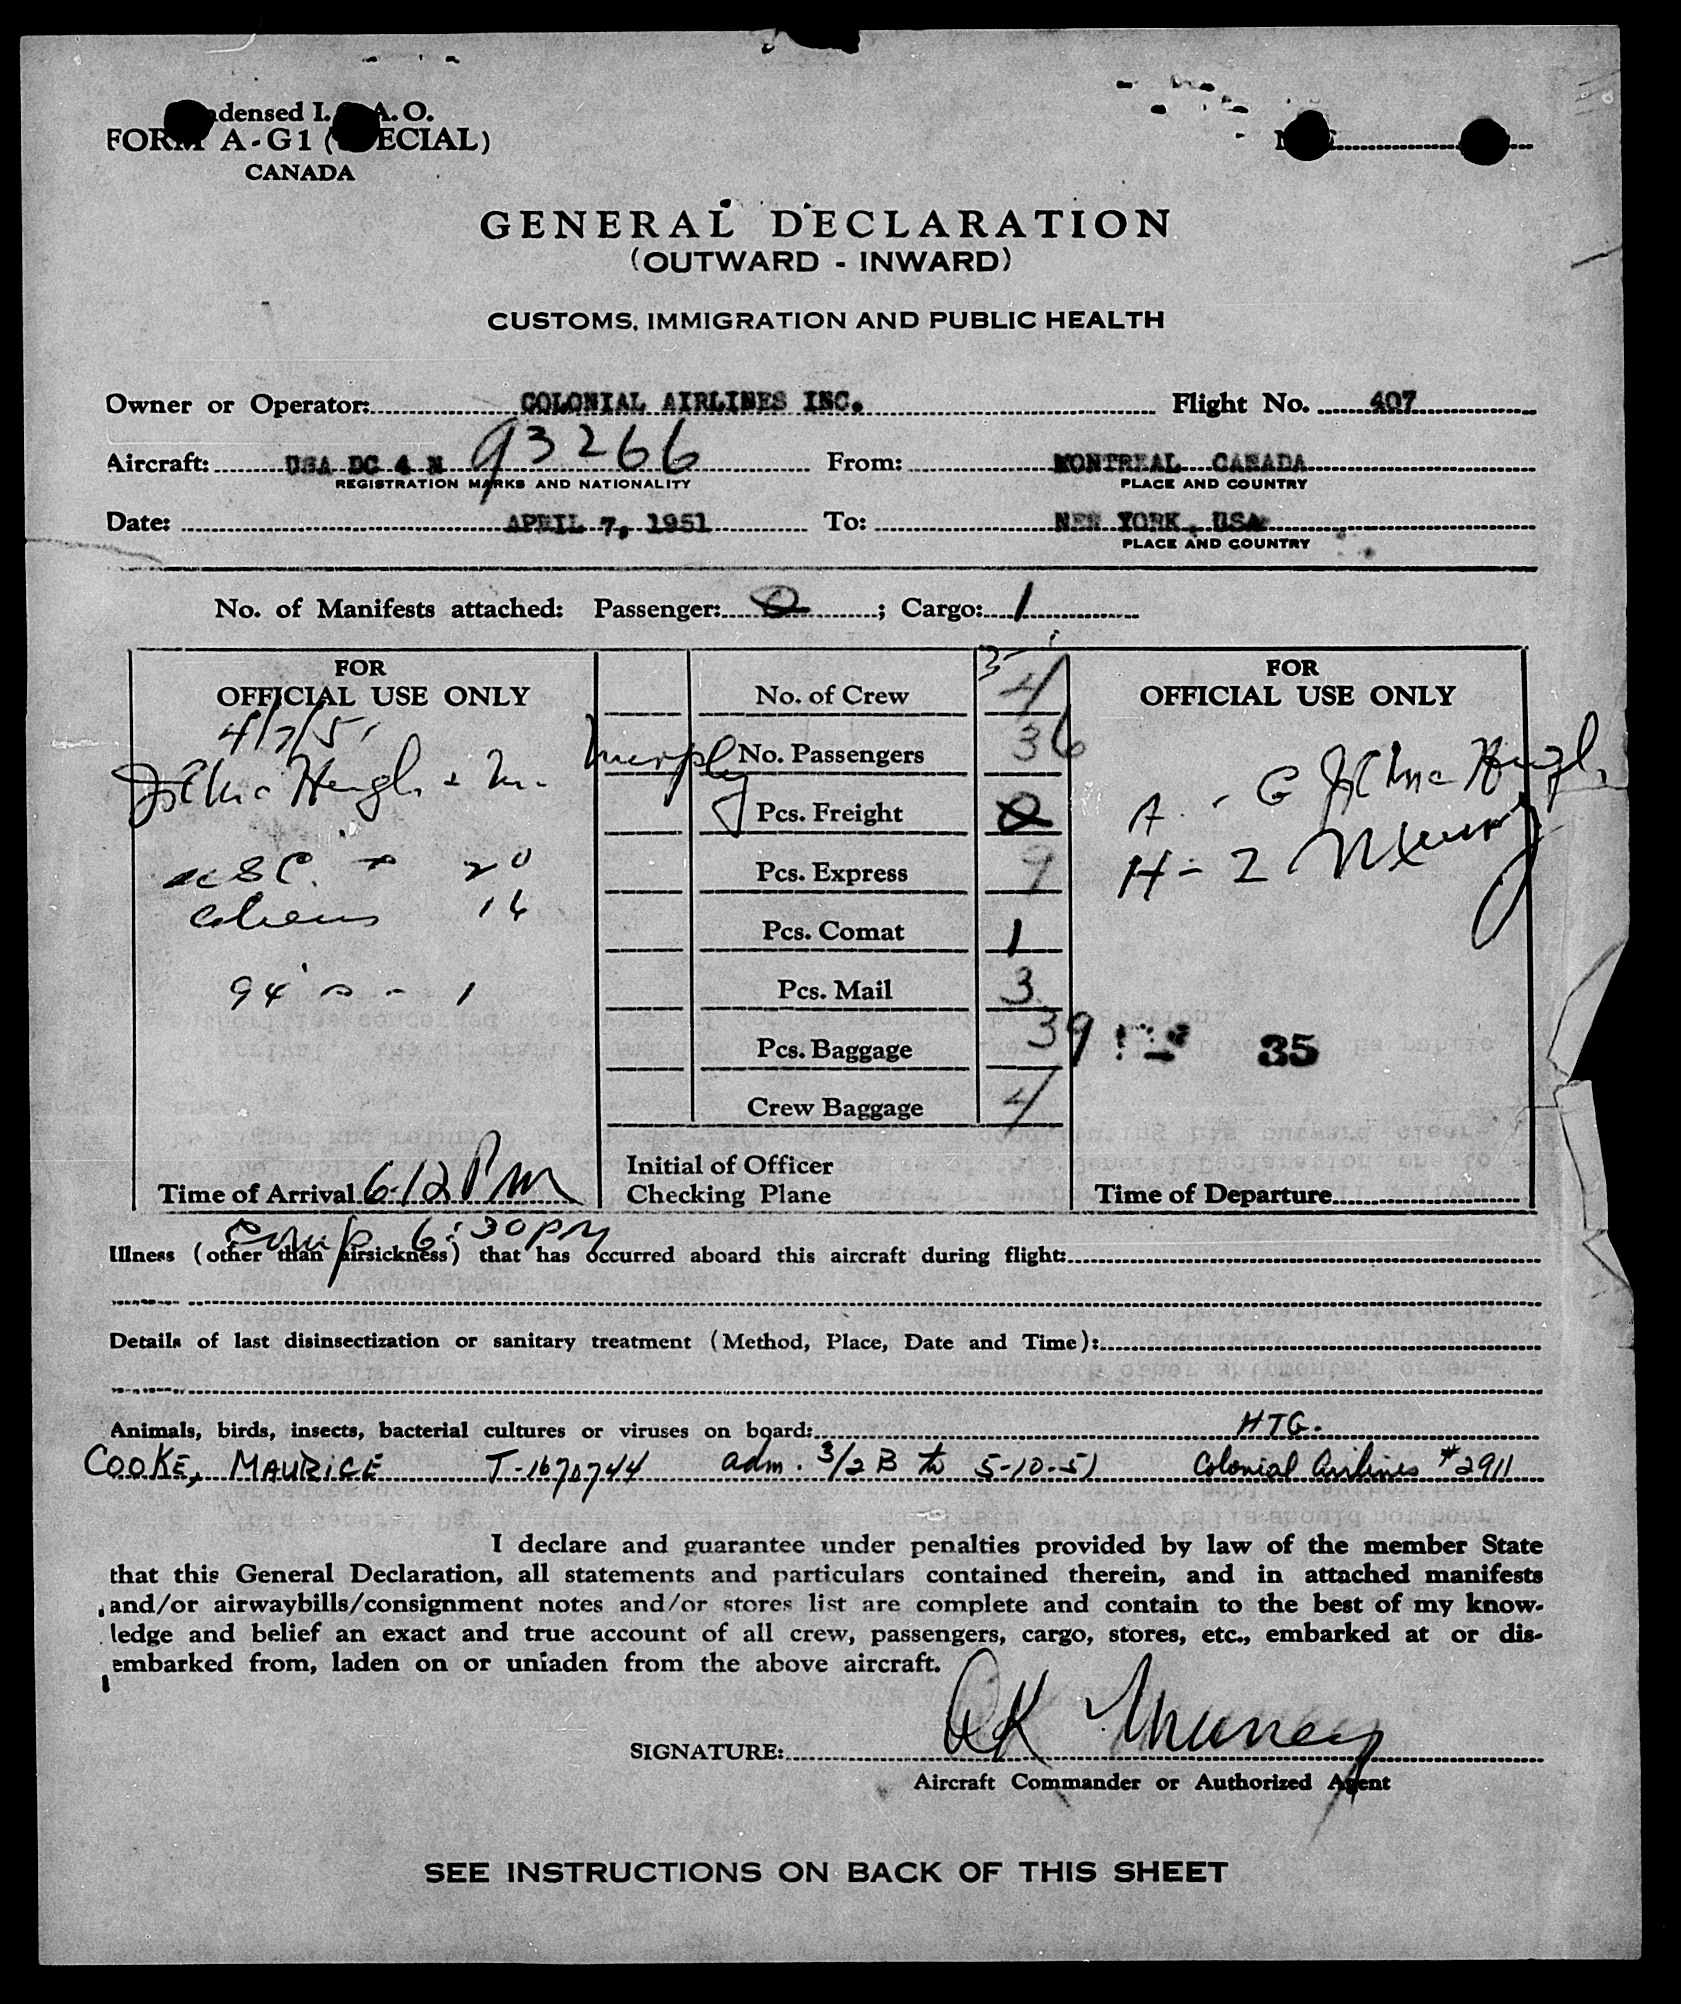 Condensed I. A. O.
FORM A-G1 (SPECIAL)
CANADA
GENERAL DECLARATION
(OUTWARD - INWARD)
CUSTOMS, IMMIGRATION AND PUBLIC HEALTH
Owner or Operator: COLONIAL AIRLINES INC. Flight No. 407
Aircraft: USA DC 4 N 93266 From: MONTREAL CANADA
REGISTRATION MARKS AND NATIONALITY PLACE AND COUNTRY
Date: APRIL 7, 1951 To: NEW YORK, USA
PLACE AND COUNTRY
No. of Manifests attached: Passenger: 0 ; Cargo: 1
FOR OFFICIAL USE ONLY
4/7/51
Murphy
USC. 20
Aliens 16
94's - 1
Time of Arrival 6:12 PM
No. of Crew 4
No. Passengers 36
Pcs. Freight 0
Pcs. Express 9
Pcs. Comat 1
Pcs. Mail 3
Pcs. Baggage 39
Crew Baggage 4
Initial of Officer
Checking Plane
FOR OFFICIAL USE ONLY
A - G
H - 2
35
Time of Departure
Comp 6:30 PM
Illness (other than airsickness) that has occurred aboard this aircraft during flight:
Details of last disinsectization or sanitary treatment (Method, Place, Date and Time):
Animals, birds, insects, bacterial cultures or viruses on board: HTG.
COOKE, MAURICE T-1670744 adm. 3/2 B to 5-10-51 Colonial Airlines #2911
I declare and guarantee under penalties provided by law of the member State
that this General Declaration, all statements and particulars contained therein, and in attached manifests
and/or airwaybills/consignment notes and/or stores list are complete and contain to the best of my know-
ledge and belief an exact and true account of all crew, passengers, cargo, stores, etc., embarked at or dis-
embarked from, laden on or unladen from the above aircraft.
SIGNATURE: AK Murrey
Aircraft Commander or Authorized Agent
SEE INSTRUCTIONS ON BACK OF THIS SHEET